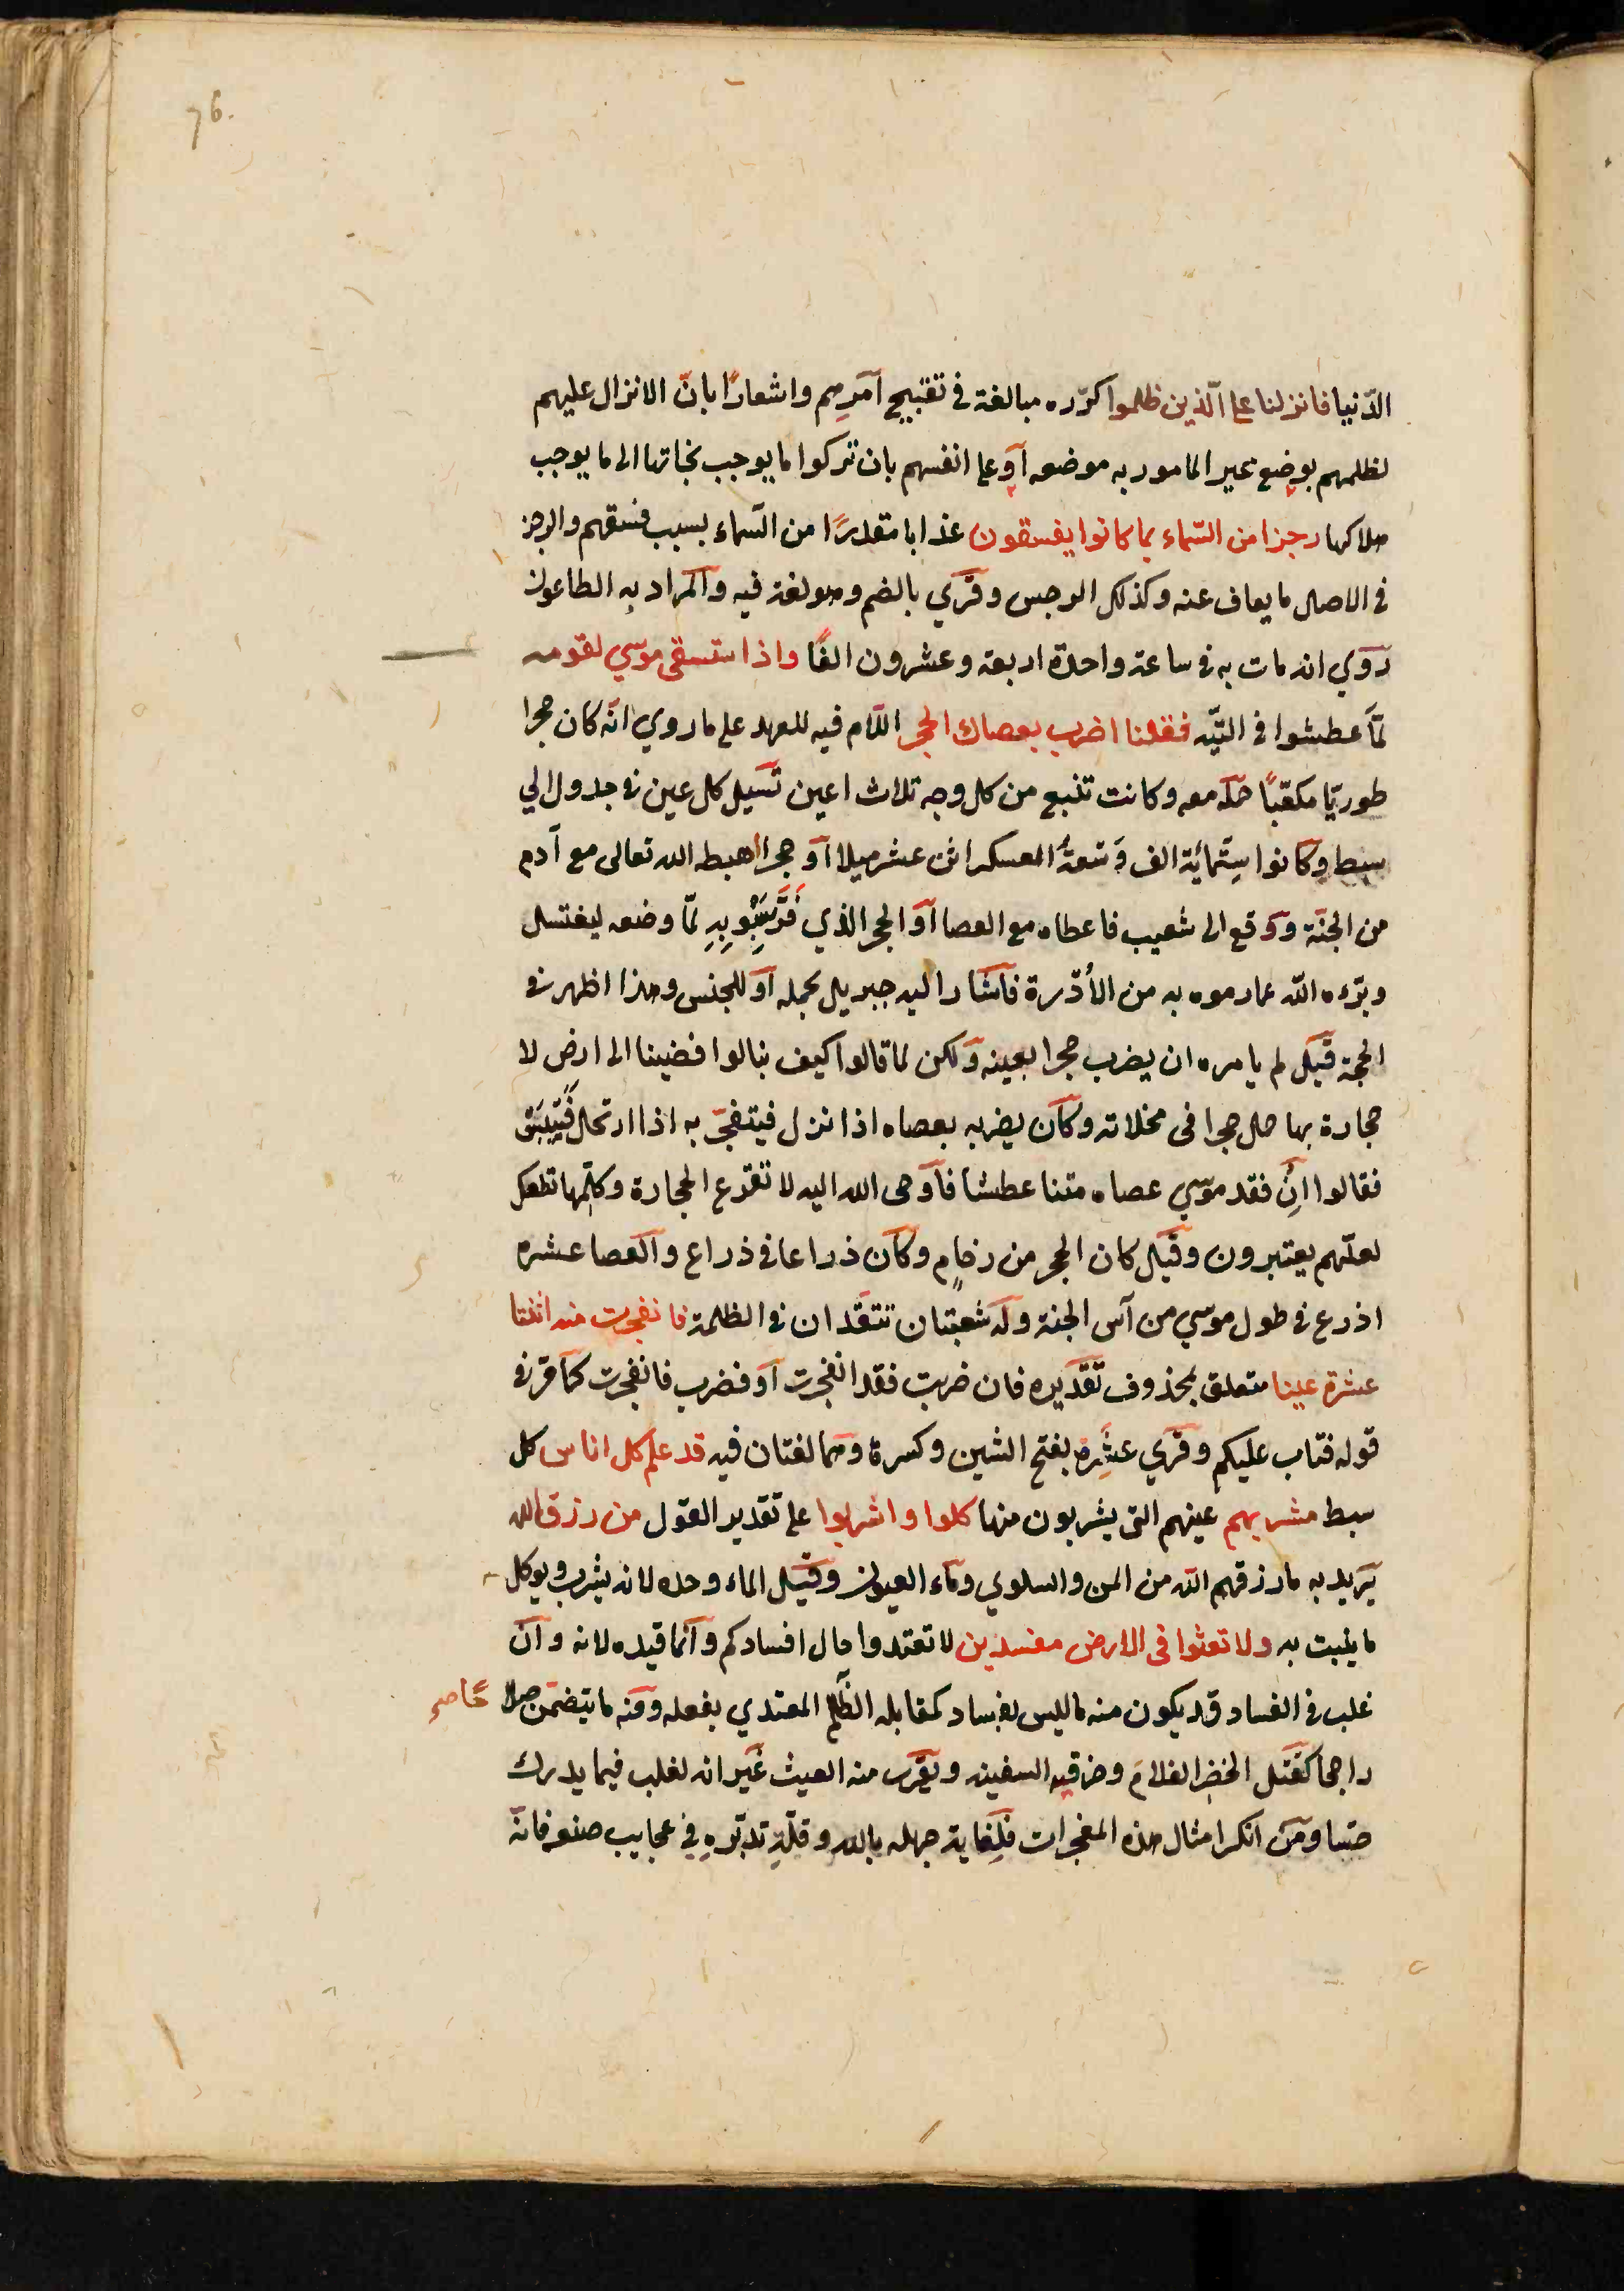 76.
الدّنيا فانزلنا على الّذين ظلموا كرّره مبالغة في تقبيح امرهم واشعارًا بانّ الانزال عليهم
لظلمهم بوضع غير المامور به موضعه او على انفسهم بان تركوا ما يوجب نجاتها الى ما يوجب
هلاكها رجزا من السّماء بما كانوا يفسقون عذابا مقدرًا من السّماء بسبب فسقهم والرجز
في الاصل ما يعاف عنه وكذلك الرجس وقري بالضم وهو لغة فيه والمراد به الطاعون
روي انه مات به في ساعة واحدة اربعة وعشرون الفًا واذا ستسقى موسي لقومه
لمّا عطشوا في التيّه فقلنا اضرب بعصاك الحجر اللّام فيه للعهد على ما روي انّه كان حجرا
طوريّا مكعّبًا حمله معه وكانت تنبع من كل وجه ثلاث اعين تسيل كل عين في جدول الي
سبط وكانوا سِتّمائة الف وَسَعَةُ المعسكر اثن عشر ميلا او حجرا اهبط الله تعالى مع آدم
من الجنّة ووقع الى شعيب فاعطاه مع العصا او الحجر الذي فَرَّ بِثَوْبِهِ لمّا وضعه ليغتسل
وبرّءه الله عما رموه به من الأدْرة فاشار اليه جبريل بحمله او للجنس وهذا اظهر في
الحجة قيل لم يامره ان يضرب حجرا بعينه ولكن لما قالوا كيف بنا لوا فضينا الى ارض لا
حجارة بها حمل حجرا في مخلاته وكان يضربه بعصاه اذا نزل فيتفجّر به اذا ارتحل فَيَيْبَسُ
فقالوا انِ فقد موسي عصاه متنا عطشا فاوحى الله اليه لا تقرع الحجارة وكلّمها تطعك
لعلّهم يعتبرون وقيل كان الحجر من رخامٍ وكان ذراعا في ذراع والعصا عشرة
اذرع في طول موسي من آس الجنة وله شعبتان تتقدان في الظلمة فانفجرت منه اثنتا
عشرة عينا متعلق بمحذوف تقديره فان ضربت فقد انفجرت او فضرب فانفجرت كما مرّ في
قوله فتاب عليكم وقري عشَِرة بفتح الشين وكسره وهما لغتان فيه قد علم كل اناس كل
سبط مشربهم عينهم التي يشربون منها كلوا واشربوا على تقدير القول من رزق الله
يريد به ما رزقهم الله من المن والسلوي وماء العيون وقيل الماء وحده لانه يشرب ويوكل
ما ينبت به ولا تعثوا في الارض مفسدين لا تعتدوا حال افسادكم وانما قيده لانه وان
غلب في الفساد قد يكون منه ما ليس بفساد كمقابلة الظّلم المعتدي بفعله ومنه ما يتضمّن صلاحًا صح
راجحا كقتل الخضر الغلامَ وخرقه السفينه ويقرب منه العيث غير انه لغلب فيما يدرك
حسا ومن انكر امثال هذه المعجزات فلِغاية جهله بالله وقلّةِ تدبّرهِ في عجايب صنعه فانّه